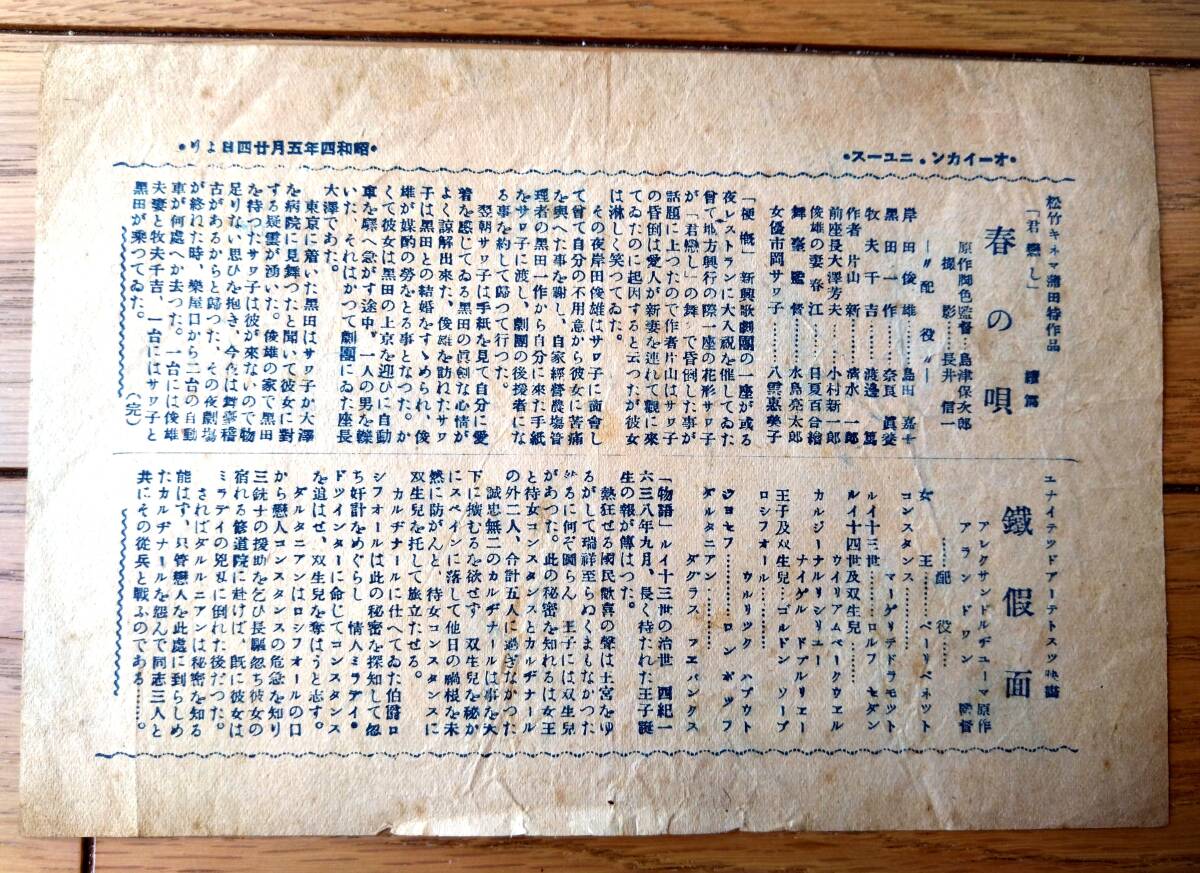 ・オーイカン・ニユース・
・昭和四年五月廿四日より・
松竹キネマ蒲田特作品
「君戀し」 續篇
春の唄
原作脚色監督…島津保次郎
撮影…長井信一
＝配役＝
岸田俊雄………島田嘉七
黒田一作………奈良眞養
牧夫千吉………渡邊篤
作者片山新………濱水一郎
前座長大澤芳夫………小村新一郎
俊雄の妻春江………日夏百合繪
舞臺監督………水島亮太郎
女優市岡サワ子………八雲惠美子
「梗概」新興歌劇團の一座が或る
夜レストランに大入祝を催してゐた
曾て地方興行の際一座の花形サワ子
が「君戀し」の舞臺で昏倒した事が
話題に上つたので作者片山はサワ子
の昏倒は愛人が新妻を連れて觀に來
てゐたのに起因すると云つたが彼女
は淋しく笑つてゐた。
その夜岸田俊雄はサワ子に面會し
て曾て自分の不用意から彼女に苦痛
を與へた事を謝し、自家經營農場管
理者の黒田一作から自分に來た手紙
をサワ子に渡し、劇團の後援者にな
る事を約して歸つて行つた。
翌朝サワ子は手紙を見て自分に愛
着を感じてゐる黒田の眞劍な心情が
よく諒解出來た、俊雄を訪れたサワ
子は黒田との結婚をすゝめられ、俊
雄が媒酌の勞をとる事となつた。か
くて彼女は黒田の上京を迎ひに自動
車を驛へ急がす途中、一人の男を轢
いた それはかつて劇團にゐた座長
大澤であた。
東京に着いた黒田はサワ子が大澤
を病院に見舞つたと聞いて彼女に對
する疑雲が湧いた。俊雄の家で黒田
を待つたサワ子は彼が來ないので物
足りない思ひを抱き、今夜は舞臺稽
古があるからと歸つた、その夜劇場
が終れた時、樂屋口から二台の自動
車が何處へか去つた。一台には俊雄
夫妻と牧夫千吉、一台にはサワ子と
黒田が乘つてゐた。 （完）
ユナイテツドアーテトスツ映畵
鐵假面
アレクサンドルヂユーマ原作
アランドワン監督
……配役……
女王………ベーリベネツト
コンスタンス………
マーゲリテドラモツト
ルイ十三世………ロルフ セダン
ルイ十四世及双生兒………
ウイリアムベークウエル
カルジーナルリシリユー
ナイゲル ドブルリエー
王子及双生兒…ゴルドン ソープ
ロシフオール………
ウルリツク ハプウト
ジヨセフ………ロン ポツフ
ダルタニアン………
ダグラス フエバンクス
「物語」ルイ十三世の治世 西紀一
六三八年九月、長く待たれた王子誕
生の報が傳はつた。
熱狂せる國民歡喜の聲は王宮をゆ
るがして瑞祥至らぬくまもなかつた
然るに何ぞ圖らん 王子には双生兒
があつた。此の秘密を知れるは女王
と待女コンスタンスとカルヂナール
の外二人、合計五人に過ぎなかつた
誠忠無二のカルヂナールは事を大
下に擴むるを欲せず 双生兒を秘か
にスペインに落して他日の禍根を未
然に防がんと、待女コンスタンスに
双生兒を托して旅立たせる。
カルヂナールに仕へてゐた伯爵ロ
シフオールは此の秘密を探知して忽
ち奸計をめぐらし 情人ミラデイ・
ドツインターに命じてコンスタンス
を追はせ、双生兒を奪はうと志す。
ダルタニアンはロシフオールの口
から戀人コンスタンスの危急を知り
三銃士の援助を乞ひ長驅忽ち彼女の
宿れる修道院に赴けば、既に彼女は
ミラデイの兇刄に倒れた後だつた。
さればダルルニアンは秘密を知る
能はず、只管戀人を此處に到らしめ
たカルヂナールを怨んで同志三人と
共にその從兵と戰ふのである………